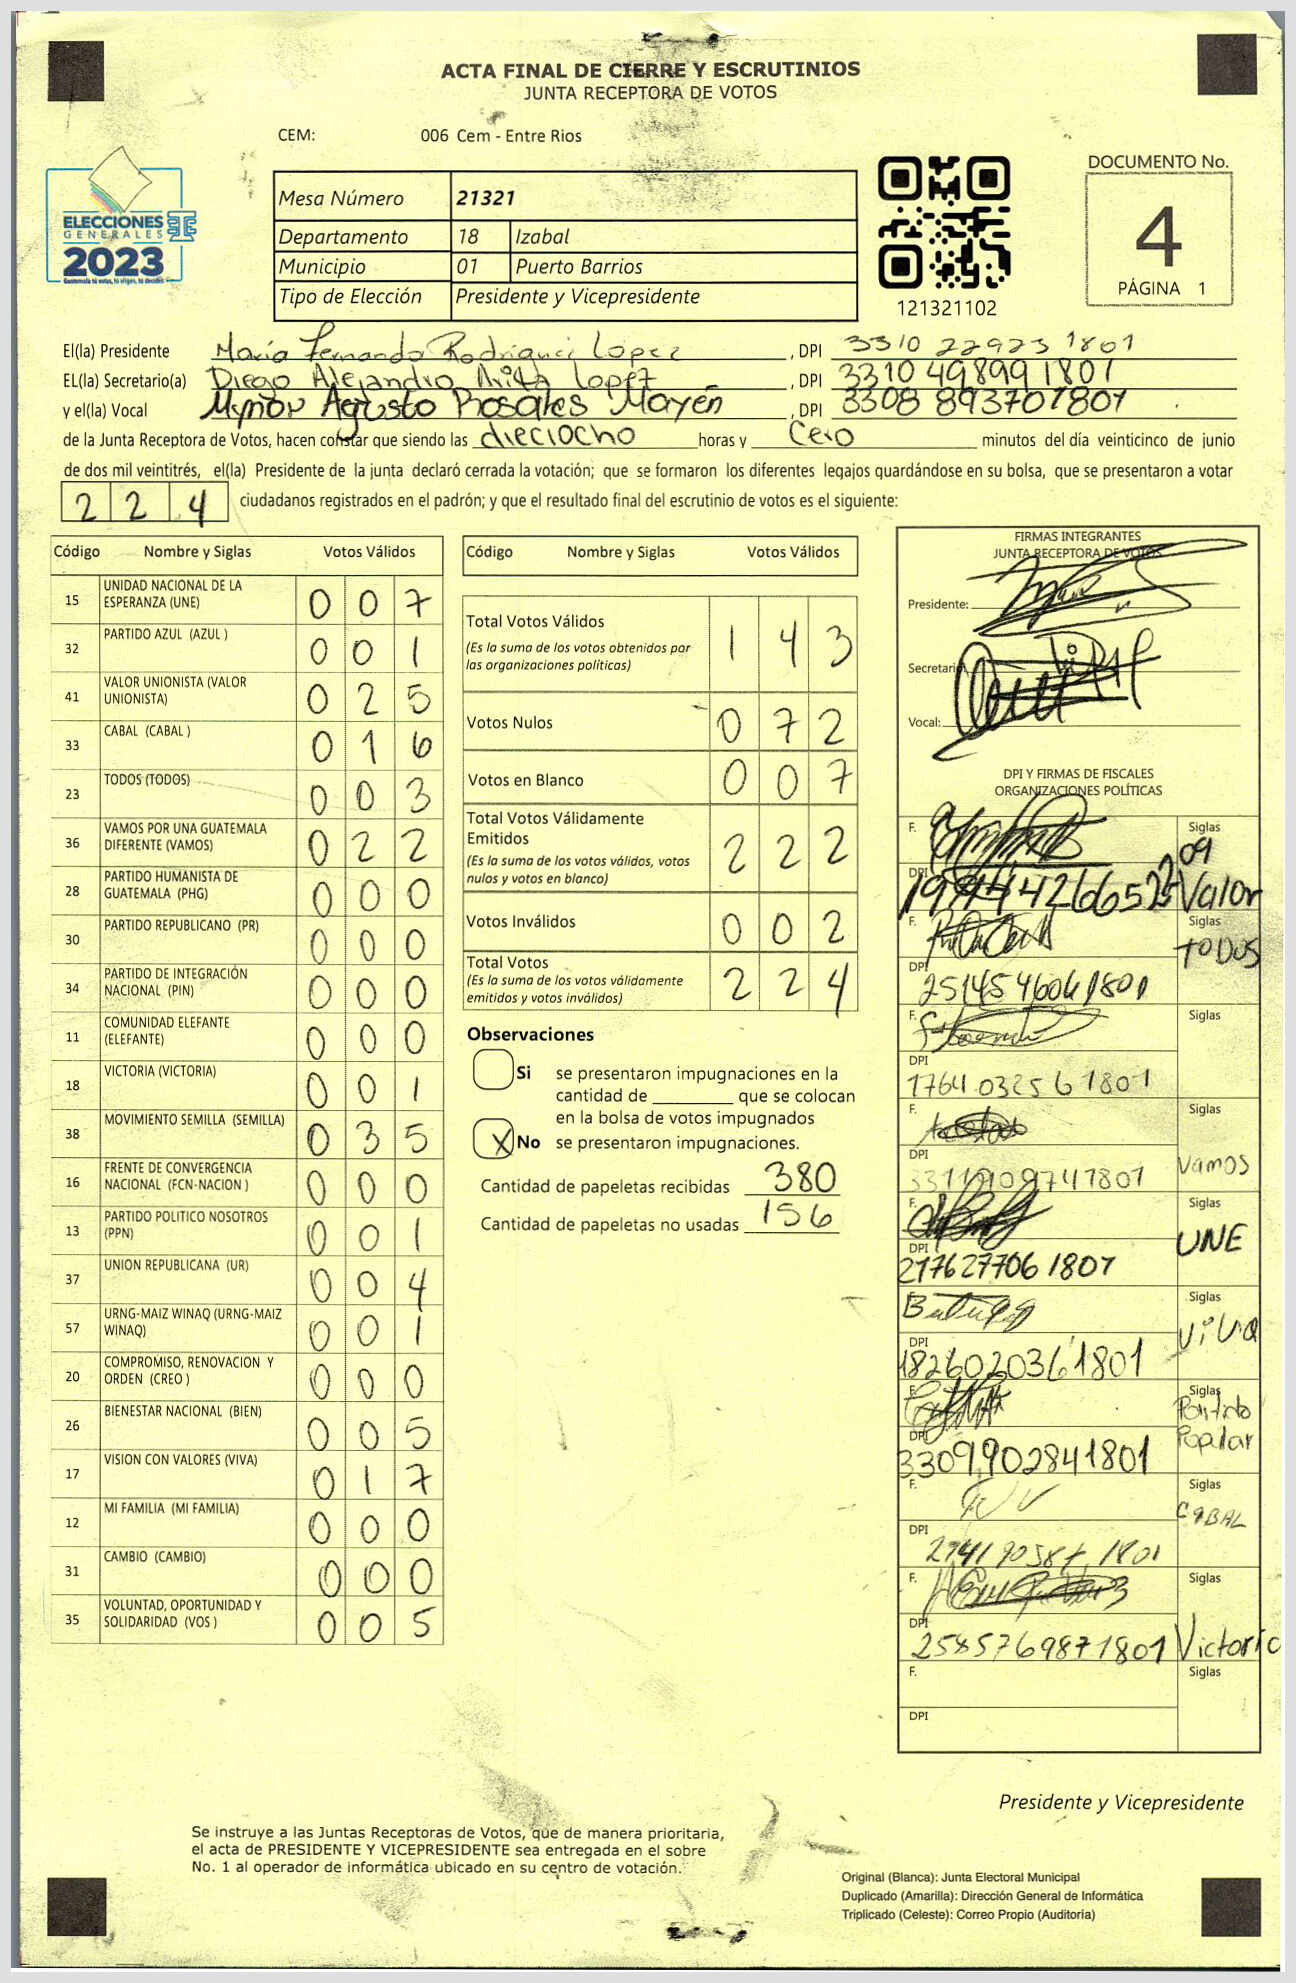 ACTA FINAL DE CIERRE Y ESCRUTINIOS
JUNTA RECEPTORA DE VOTOS
CEM: 006 Cem - Entre Rios
ELECCIONES
GENERALES
2023
Guatemala tú votas, tú eliges, tú decides
Mesa Número 21321
Departamento 18 Izabal
Municipio 01 Puerto Barrios
Tipo de Elección Presidente y Vicepresidente
121321102
DOCUMENTO No.
4
PÁGINA 1
El(la) Presidente María Fernanda Rodríguez López, DPI 3310 22923 1801
EL(la) Secretario(a) Diego Alejandro López, DPI 3310 49899 1801
y el(la) Vocal Mynor Agusto Rosales Mayén, DPI 3308 89370 1801
de la Junta Receptora de Votos, hacen constar que siendo las dieciocho horas y Cero minutos del día veinticinco de junio
de dos mil veintitrés, el(la) Presidente de la junta declaró cerrada la votación; que se formaron los diferentes legajos guardándose en su bolsa, que se presentaron a votar
224 ciudadanos registrados en el padrón; y que el resultado final del escrutinio de votos es el siguiente:
Código Nombre y Siglas Votos Válidos
15 UNIDAD NACIONAL DE LA ESPERANZA (UNE) 0 0 7
32 PARTIDO AZUL (AZUL ) 0 0 1
41 VALOR UNIONISTA (VALOR UNIONISTA) 0 2 5
33 CABAL (CABAL ) 0 1 6
23 TODOS (TODOS) 0 0 3
36 VAMOS POR UNA GUATEMALA DIFERENTE (VAMOS) 0 2 2
28 PARTIDO HUMANISTA DE GUATEMALA (PHG) 0 0 0
30 PARTIDO REPUBLICANO (PR) 0 0 0
34 PARTIDO DE INTEGRACIÓN NACIONAL (PIN) 0 0 0
11 COMUNIDAD ELEFANTE (ELEFANTE) 0 0 0
18 VICTORIA (VICTORIA) 0 0 1
38 MOVIMIENTO SEMILLA (SEMILLA) 0 3 5
16 FRENTE DE CONVERGENCIA NACIONAL (FCN-NACION ) 0 0 0
13 PARTIDO POLITICO NOSOTROS (PPN) 0 0 1
37 UNION REPUBLICANA (UR) 0 0 4
57 URNG-MAIZ WINAQ (URNG-MAIZ WINAQ) 0 0 1
20 COMPROMISO, RENOVACION Y ORDEN (CREO ) 0 0 0
26 BIENESTAR NACIONAL (BIEN) 0 0 5
17 VISION CON VALORES (VIVA) 0 1 7
12 MI FAMILIA (MI FAMILIA) 0 0 0
31 CAMBIO (CAMBIO) 0 0 0
35 VOLUNTAD, OPORTUNIDAD Y SOLIDARIDAD (VOS ) 0 0 5
Código Nombre y Siglas Votos Válidos
Total Votos Válidos 1 4 3
(Es la suma de los votos obtenidos por
las organizaciones políticas)
Votos Nulos 0 7 2
Votos en Blanco 0 0 7
Total Votos Válidamente
Emitidos 2 2 2
(Es la suma de los votos válidos, votos
nulos y votos en blanco)
Votos Inválidos 0 0 2
Total Votos 2 2 4
(Es la suma de los votos válidamente
emitidos y votos inválidos)
Observaciones
Si se presentaron impugnaciones en la
cantidad de ________ que se colocan
en la bolsa de votos impugnados
X No se presentaron impugnaciones.
Cantidad de papeletas recibidas 380
Cantidad de papeletas no usadas 156
FIRMAS INTEGRANTES
JUNTA RECEPTORA DE VOTOS
Presidente:
Secretario:
Vocal:
DPI Y FIRMAS DE FISCALES
ORGANIZACIONES POLÍTICAS
F. Siglas
DPI Valor
F. Siglas
TODOS
DPI 2514546061801
F. Siglas
DPI 1764 03256 1801
F. Siglas
Vamos
DPI
F. Siglas
UNE
DPI 217627706 1801
F. Siglas
VIVA
DPI 1826020361801
F. Siglas
Partido
Popular
DPI 3309902841801
F. Siglas
CABAL
DPI
F. Siglas
DPI 2585769871801 Victoria
F. Siglas
DPI
Presidente y Vicepresidente
Se instruye a las Juntas Receptoras de Votos, que de manera prioritaria,
el acta de PRESIDENTE Y VICEPRESIDENTE sea entregada en el sobre
No. 1 al operador de informática ubicado en su centro de votación.
Original (Blanca): Junta Electoral Municipal
Duplicado (Amarilla): Dirección General de Informática
Triplicado (Celeste): Correo Propio (Auditoría)